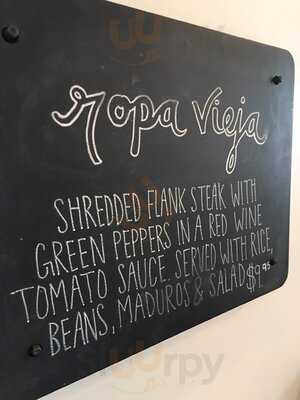 ropa vieja
SHREDDED FLANK STEAK WITH
GREEN PEPPERS IN A RED WINE
TOMATO SAUCE. SERVED WITH RICE,
BEANS, MADUROS & SALAD $9.95
sluurpy